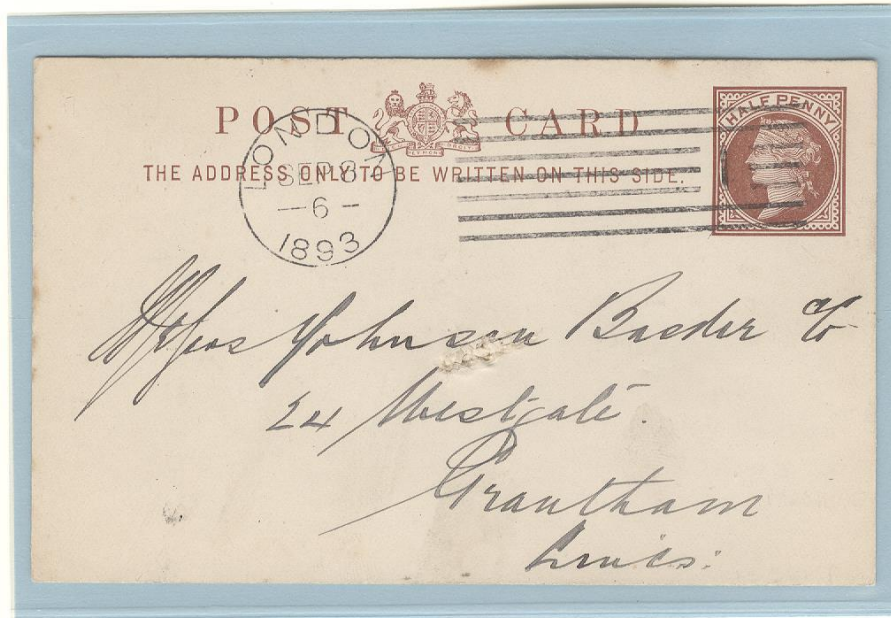 POST CARD
THE ADDRESS ONLY TO BE WRITTEN ON THIS SIDE.
HALF PENNY
LONDON
SEP 8
6
1893
Messrs Johnson Basder & Co
24 Westgate.
Grantham
Lincs: